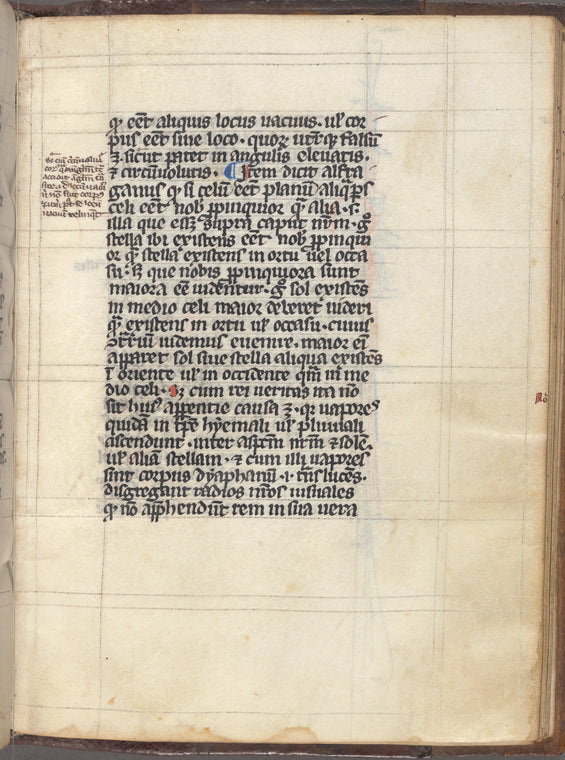 qͥ eēt aliquis locus uacuus. ul̄ cor
pus eēt siue loco. quoꝝ utrūq; falsū
ē. sicut patet in angulis eleuatis.
⁊ circūuolutis. ¶ Item dicit alfra
ganus qͥ si celū eēt planū aliq̄ ps
celi eēt nob̄ ꝓpinquior qͣ̄ alia. s.
illa que eēt supra caput nrm̄. gͦ
stella ibi existens eēt nob̄ ꝓpinqui
or qͣ̄ stella existens in ortu uel occa
su. sꝫ que nobis ꝓpinquiora sunt
maiora eē uident᷑. gͦ sol existēs
in medio celi maior deberet uideri
qͣ̄ existens in ortu ul̄ occasu. cuius
ꝯtrariū uidemus euenire. maior ei̅
apparet sol siue stella aliqua existēs
ī oriente ul̄ in occidente qͣm in me
dio celi. Sꝫ cum rei ueritas ita nō
sit huiꝰ appentie causa ē. qꝛ uapores
quidā in tp̄e hyemali ul̄ pluuiali
ascendunt. inter aspectū nrm̄ ⁊ solē.
ul̄ aliā stellam. ⁊ cum illi uapores
sint corpus dyaphanū .i. trn̄s lucēs.
disgregant radios nr̄os uisuales
qͥ nō app̄hendūt rem in sua uera